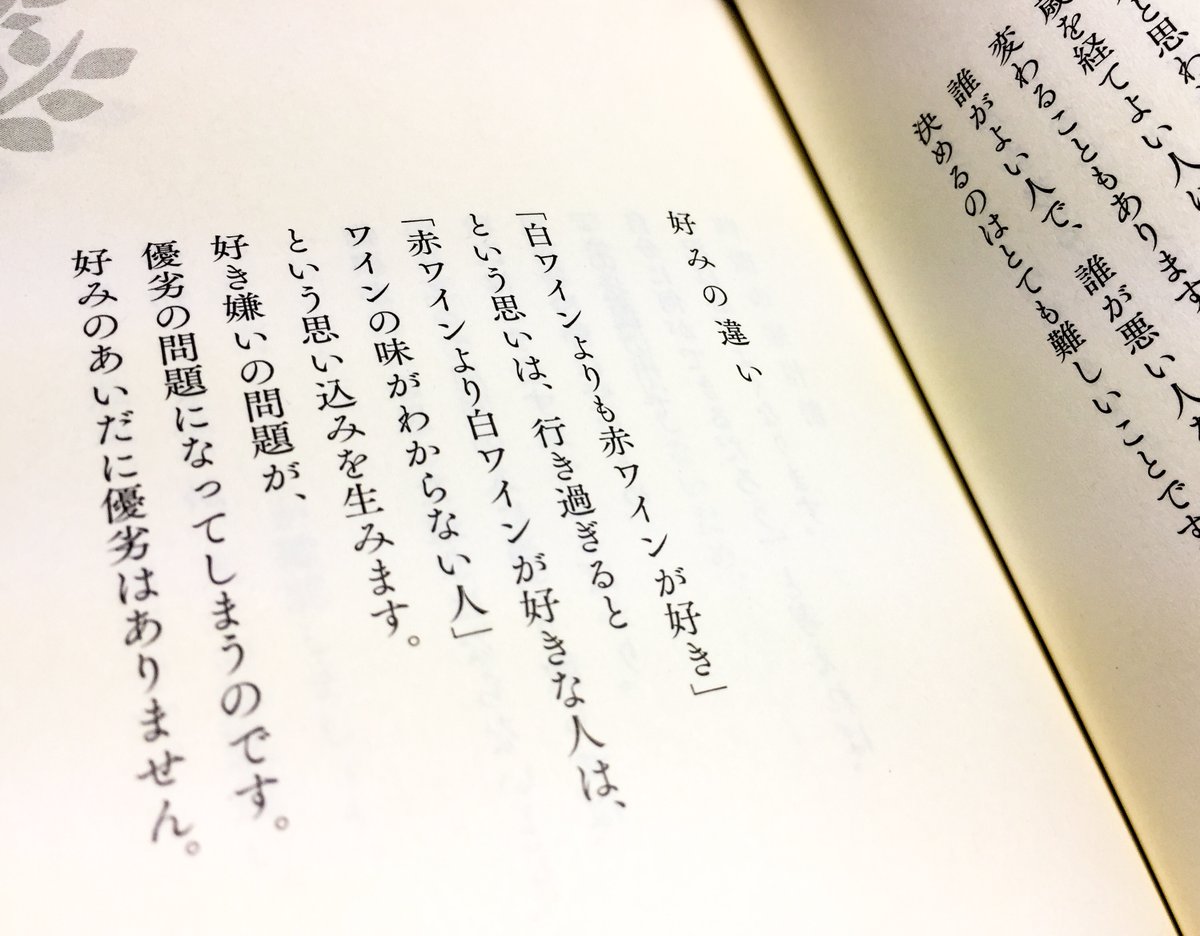 と思わ
歳を経てよい人に
変わることもあります
誰がよい人で、誰が悪い人
決めるのはとても難しいことです
好みの違い
「白ワインよりも赤ワインが好き」
という思いは、行き過ぎると
「赤ワインより白ワインが好きな人は、
ワインの味がわからない人」
という思い込みを生みます。
好き嫌いの問題が、
優劣の問題になってしまうのです。
好みのあいだに優劣はありません。